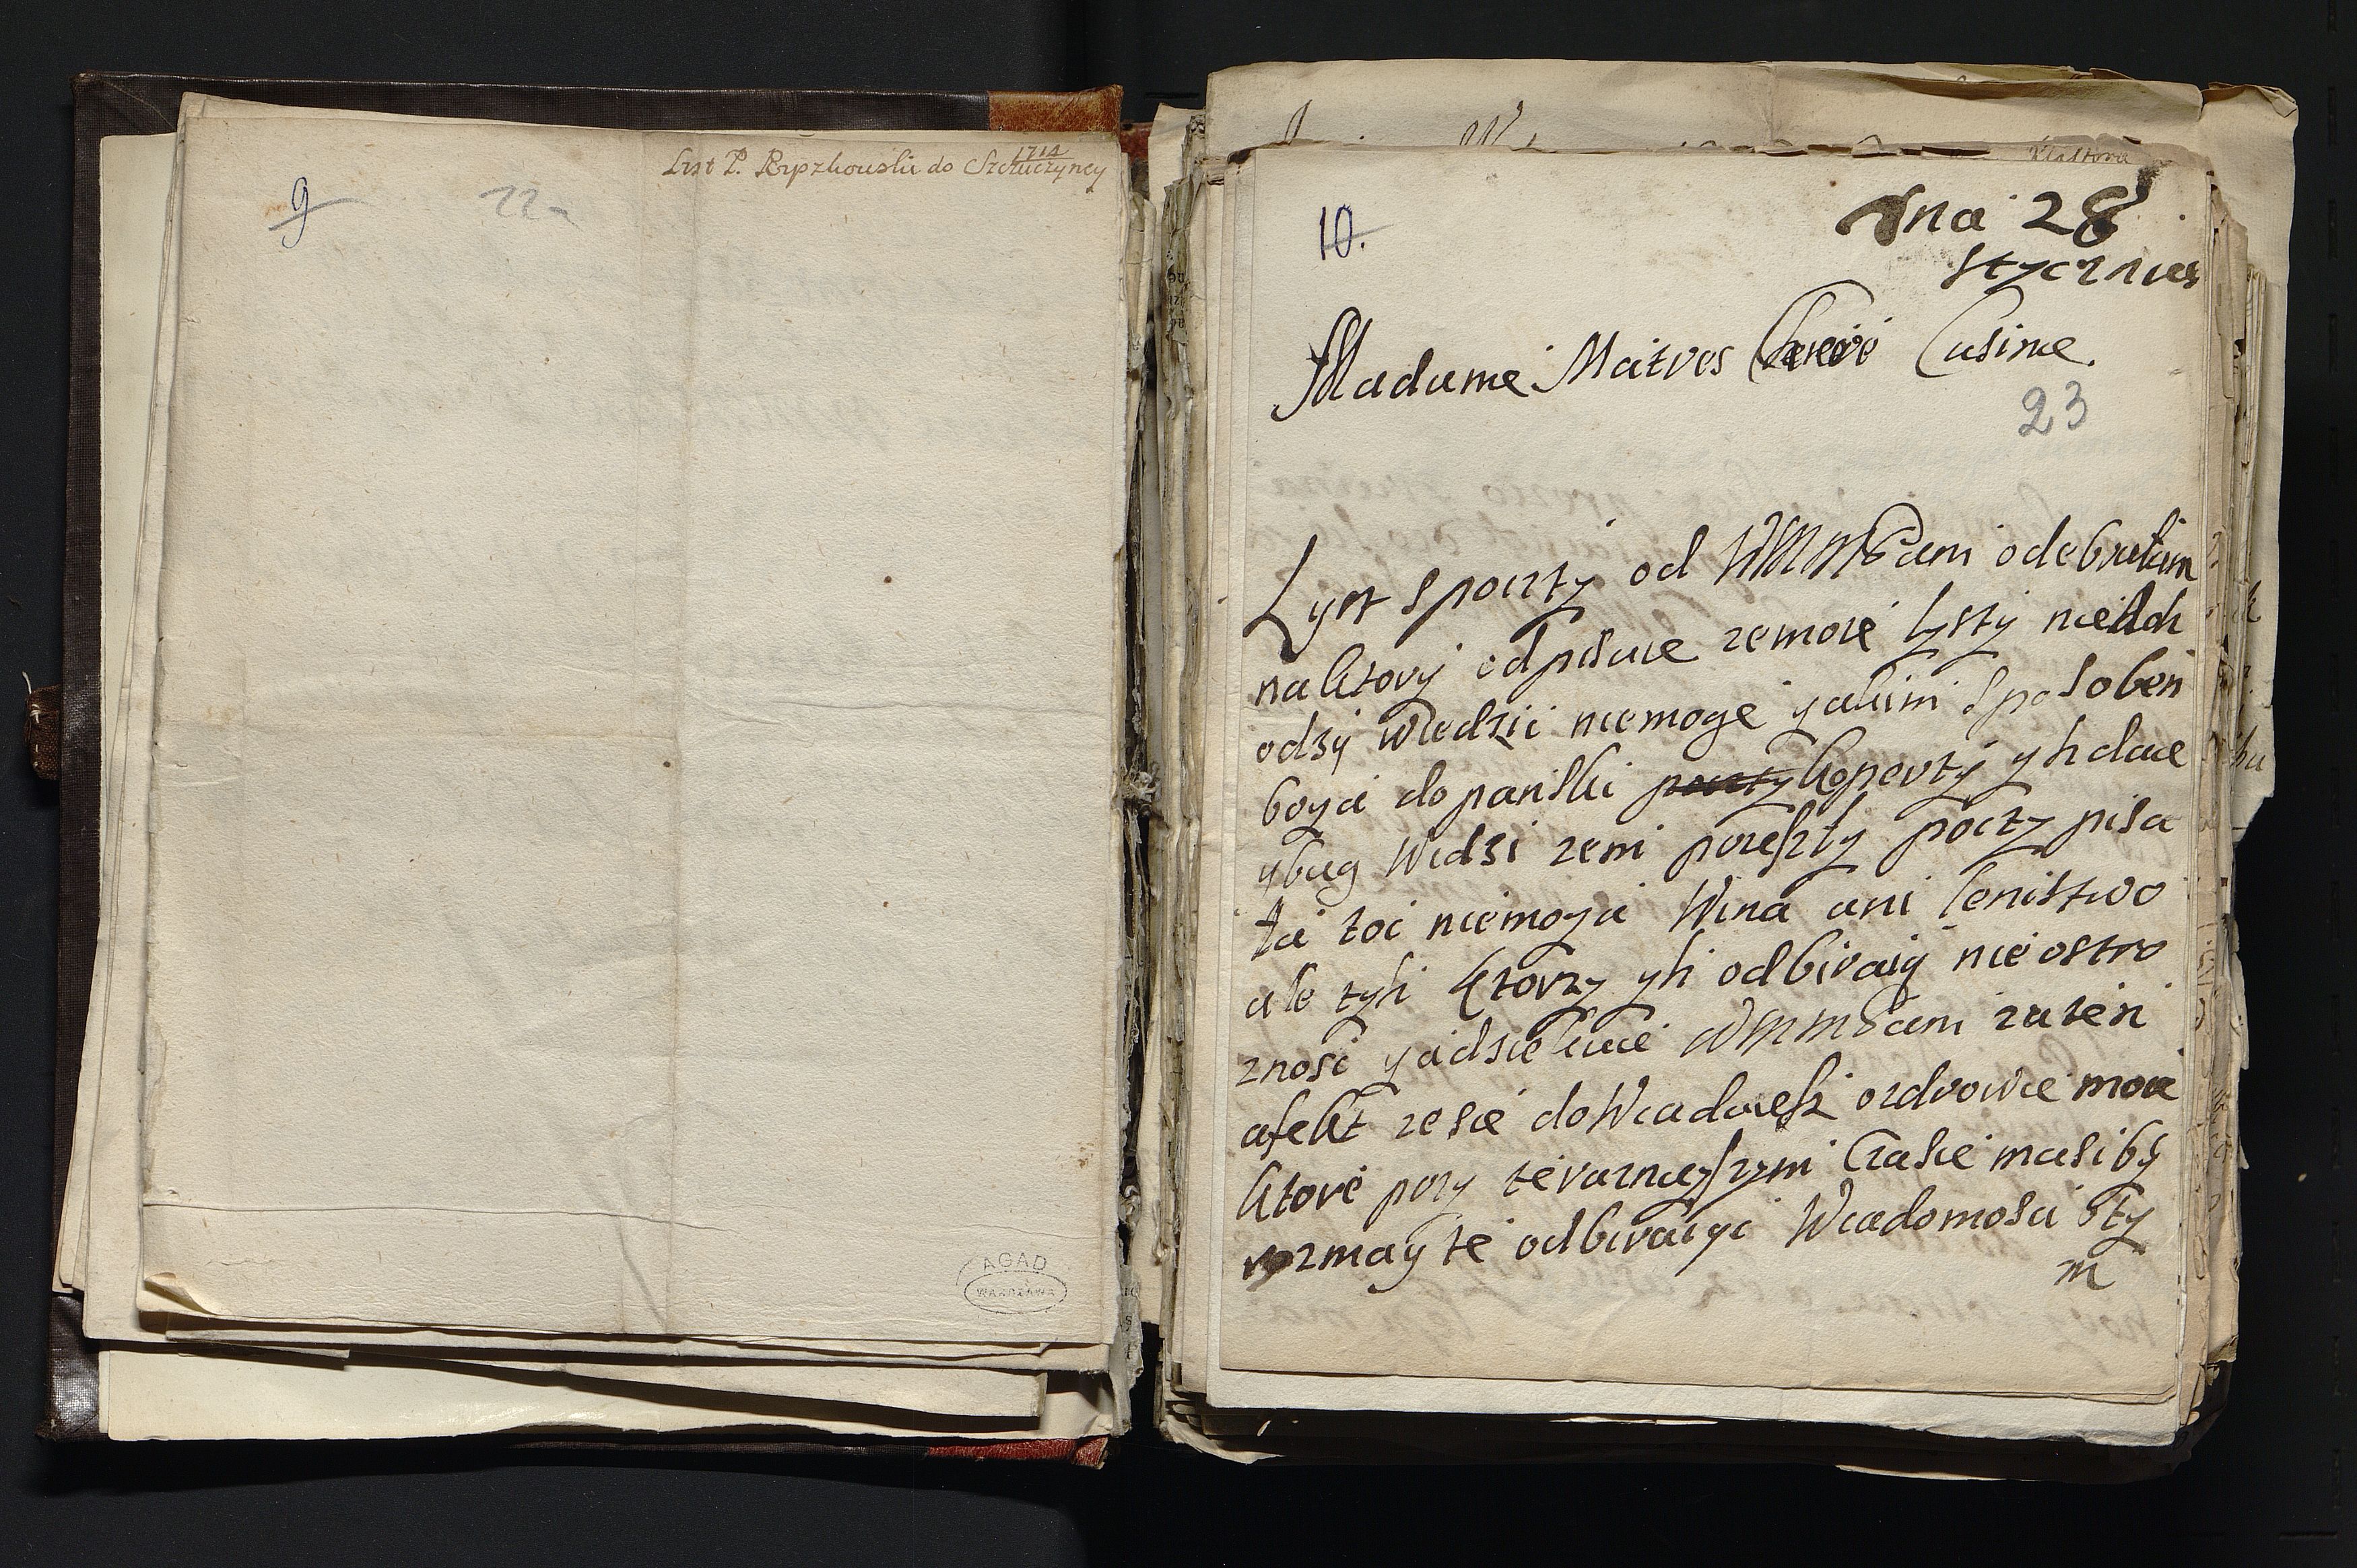 1714
List P. Rupzkowski do Szczuczyney
9
22a
AGAD
WARSZAWA
10.
dna 28
stycznies
Madame Maitres Cheré Cusine.
23
Lyst s poczty od WMMPani odebralam
na ktory odpisuie zemoie lysty nie doh
odzy wiedzic niemoge yakim sposoben
boya do panski koperty yh daie
ybug widzi zem poreszly poczty pisa
la toc niemoya wina ani lenistwo
ale tyh ktorzy yh odbiraiy nie ostro
znosc ya dziekuie WMMPani za ten
afekt ze sie dowiaduiesz ozdrowie moie
ktore przy teraznieyszym czasie musi by
rozmayte odbiraiyc wiadomosci o ty
m